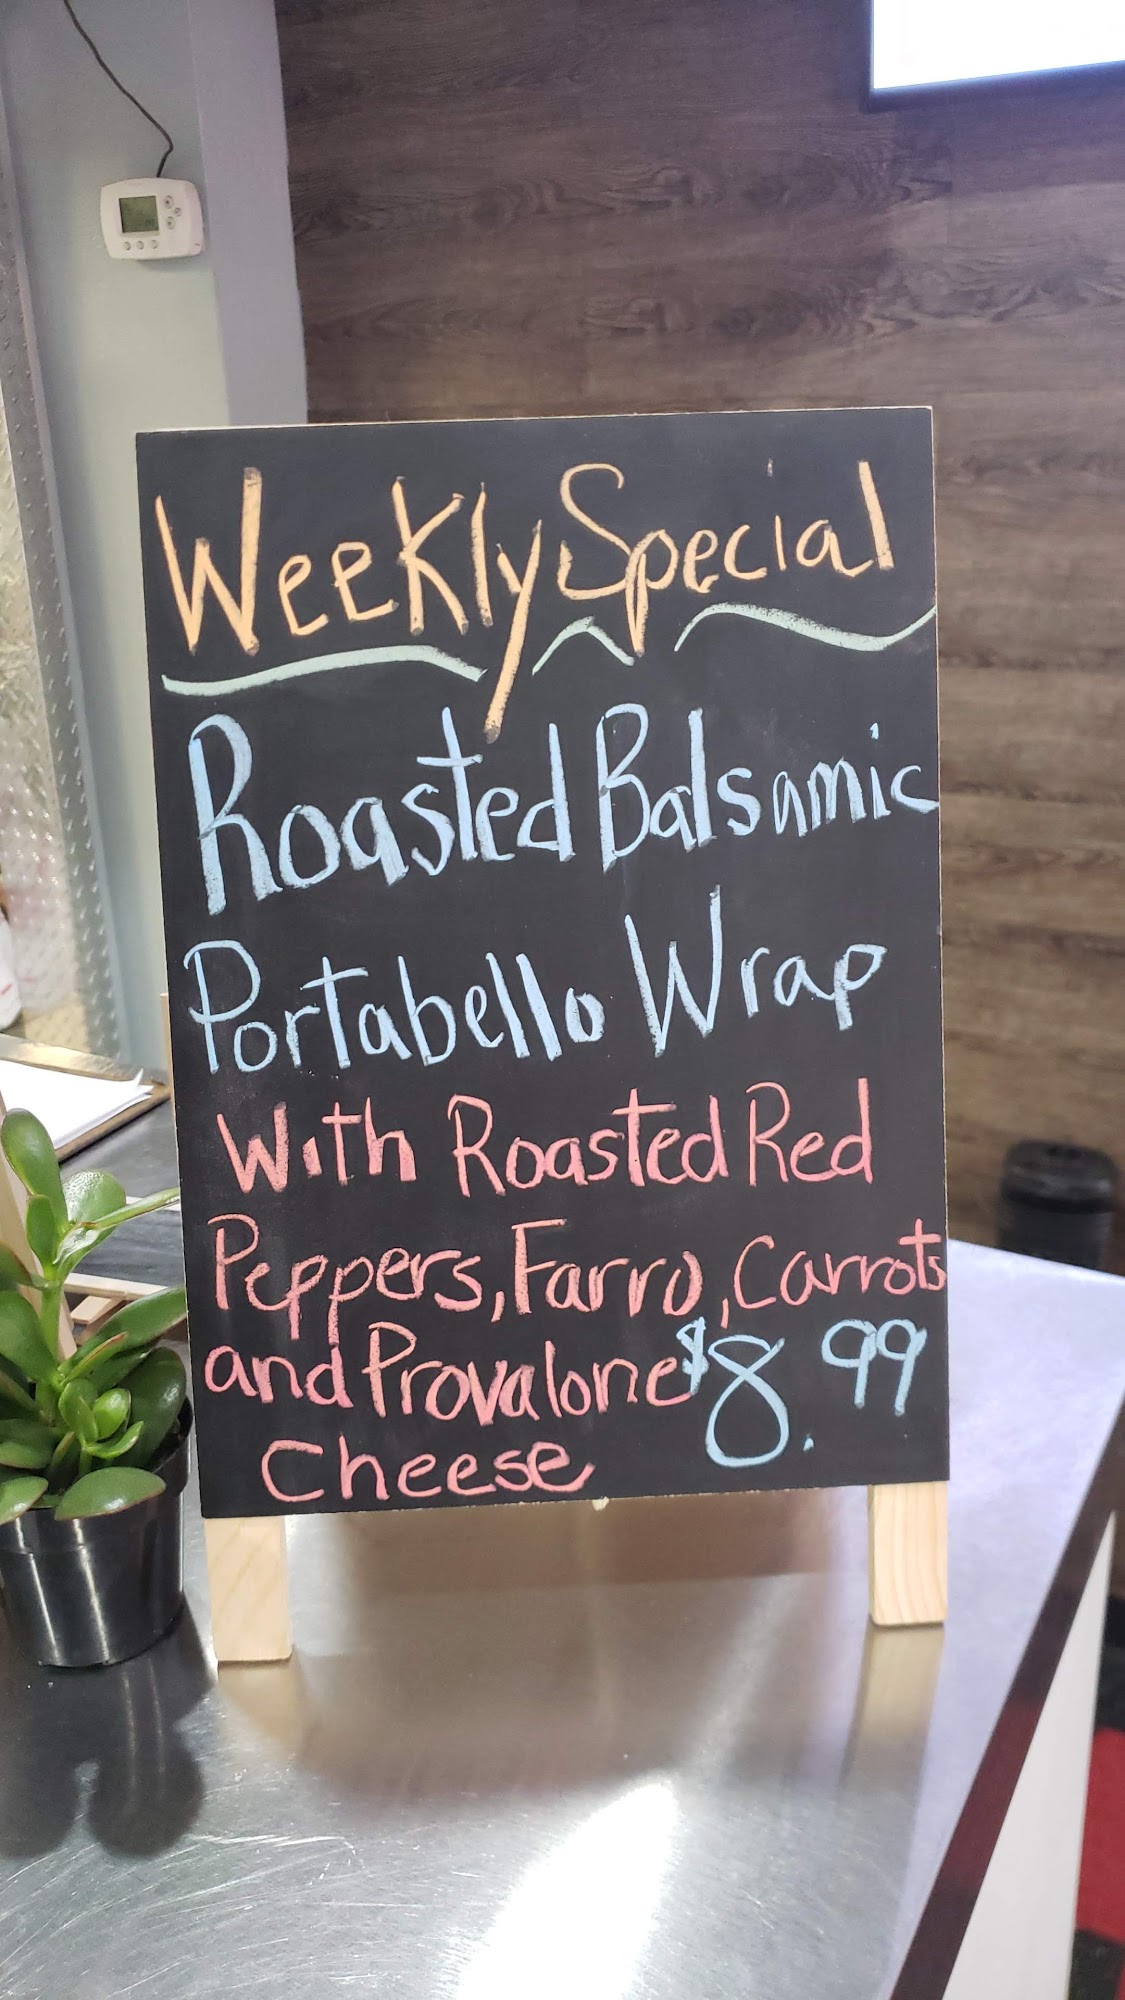 Weekly Special
Roasted Balsamic
Portabello Wrap
With Roasted Red
Peppers, Farro, Carrots
and Provalone $8.99
Cheese